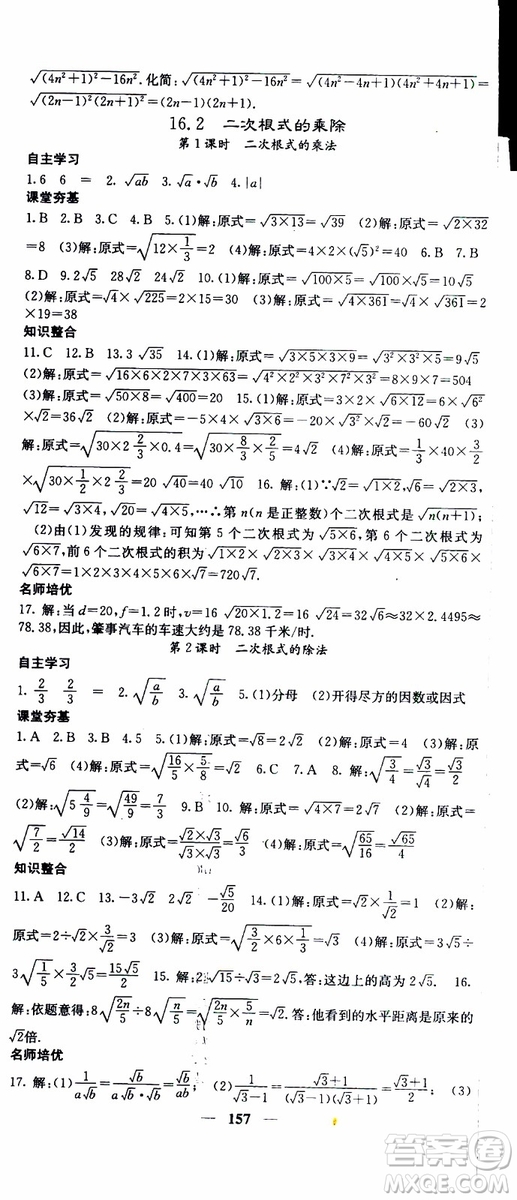 √((4n²+1)²−16n²).化简：√((4n²+1)²−16n²)=√((4n²−4n+1)(4n²+4n+1))=
√((2n−1)²(2n+1)²)=(2n−1)(2n+1).
16.2 二次根式的乘除
第1课时 二次根式的乘法
自主学习
1.6 6 = 2.√(ab) 3.√a·√b 4.|a|
课堂夯基
1.B 2.B 3.C 4.B 5.(1)解：原式=√(3×13)=√39 (2)解：原式=√(2×32)
=8 (3)解：原式=√(12×1/3)=2 (4)解：原式=4×2×(√5)²=40 6.B 7.B
8.D 9.2√5 28√2 24√2 10.(1)解：原式=√(100×5)=√100×√5=10√5
(2)解：原式=√4×√225=2×15=30 (3)解：原式=√(4×361)=√4×√361=2
×19=38
知识整合
11.C 12.B 13.3√35 14.(1)解：原式=√(3×5×3×9)=√(3²×3²×5)=9√5
(2)解：原式=√(16×6×2×7×3×63)=√(4²×2²×3²×7²×3²)=8×9×7=504
(3)解：原式=√(50×8)=√400=20 15.(1)解：原式=3×2×√(6×12)=6×√(6²
×√2=36√2 (2)解：原式=−5×4×√(3²×3)=−20×3√3=−60√3 (3)
解：原式=√(30×2 2/3×2/5)=√(30×8/3×2/5)=4√2 (4)解：原式=1/3×40×3/2
×√(30×1/2×2 2/3)=20×√40=40√10 16.解：(1)∵√2=√(1×2),√6=√(2×3),
√12=√(3×4),√20=√(4×5),…∴第n(n是正整数)个二次根式是√(n(n+1));
(2)由(1)发现的规律：可知第5个二次根式为√(5×6),第6个二次根式为
√(6×7),前6个二次根式的积为√(1×2)×√(2×3)×√(3×4)×√(4×5)×√(5×6)×
√(6×7)=1×2×3×4×5×6×√7=720√7.
名师培优
17.解：当d=20,f=1.2时,v=16√(20×1.2)=16√24=32√6≈32×2.4495≈
78.38,因此,肇事汽车的车速大约是78.38千米/时.
第2课时 二次根式的除法
自主学习
1.2/3 2/3 = 2.√(a/b) 3.√(a/b) 4.(1)分母 (2)开得尽方的因数或因式
课堂夯基
1.A 2.B 3.B 4.5 5.(1)解：原式=√8=2√2 (2)解：原式=4 (3)解：原
式=√6 (4)解：原式=√(16/5×5/8)=√2 6.B 7.C 8.(1)解：原式=√(3/4)=√3/√4=√3/2
(2)解：原式=√(5 4/9)=√(49/9)=7/3 9.C 10.(1)解：原式=√(4×7)=2√7 (2)解：原式=
√(7/2)=√14/2 (3)解：原式=(√2×√3)/(√3×√3)=√6/3 (4)解：原式=√(65/16)=√65/√16=√65/4
知识整合
11.A 12.C 13.−3√2 −√5/20 14.(1)解：原式=√2×1/√2=1 (2)解：原
式=2÷√2=√2 (3)解：原式=√(3/2×6×1/3)=√3 (4)解：原式=5√3÷√2×
3√(1/5)×√(5/2)=15√5/2 15.2√15×√3÷3√2 答：这边上的高为2√5. 16.
解：依题意得：8√(2n/5)÷8√(n/5)=√(2n/5×5/n)=√2.答：他看到的水平距离是原来的
√2倍.
名师培优
17.解：(1)1/(a√b)=√b/(a√b×√b)=√b/(ab); (2)1/(√3−1)=(√3+1)/((√3−1)(√3+1))=(√3+1)/2; (3)
157
答案圈